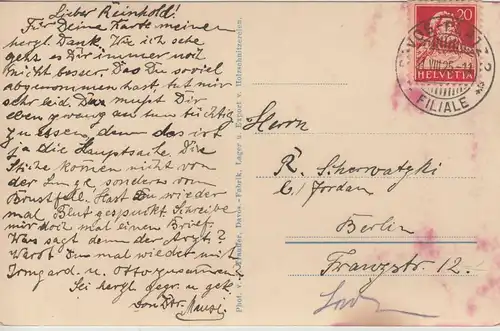 Lieber Reinhold!
Für Deine Karte meinen
herzl. Dank. Wie ich sehe
gehts es Dir immer noch
nicht besser. Das Du soviel
abgenommen hast tut mir
sehr leid. Das mußt Dir
eben zwang an tun tüchtig
zu essen, denn das ist
ja die Hauptsache. Die
Stiche kommen nicht von
der Lunge sondern vom
Brustfell. Hast Du wieder
mal Blut gespuckt. Schreibe
mir doch mal einen Brief.
Was sagt denn der Arzt?
Warst Du mal wieder mit
Irmgard u. Otto zusammen?
Sei herzl. gegr. u. gek.
von Dtr.
Phot. v. Davos - Fabrik, Lager u. Export v. Holzschnitzereien.
20
HELVETIA
DAVOS PLATZ 2
VIII.25.-11
FILIALE
Herrn
R. Scherwatzki
b/ Jordan
Berlin
Franzstr. 12.